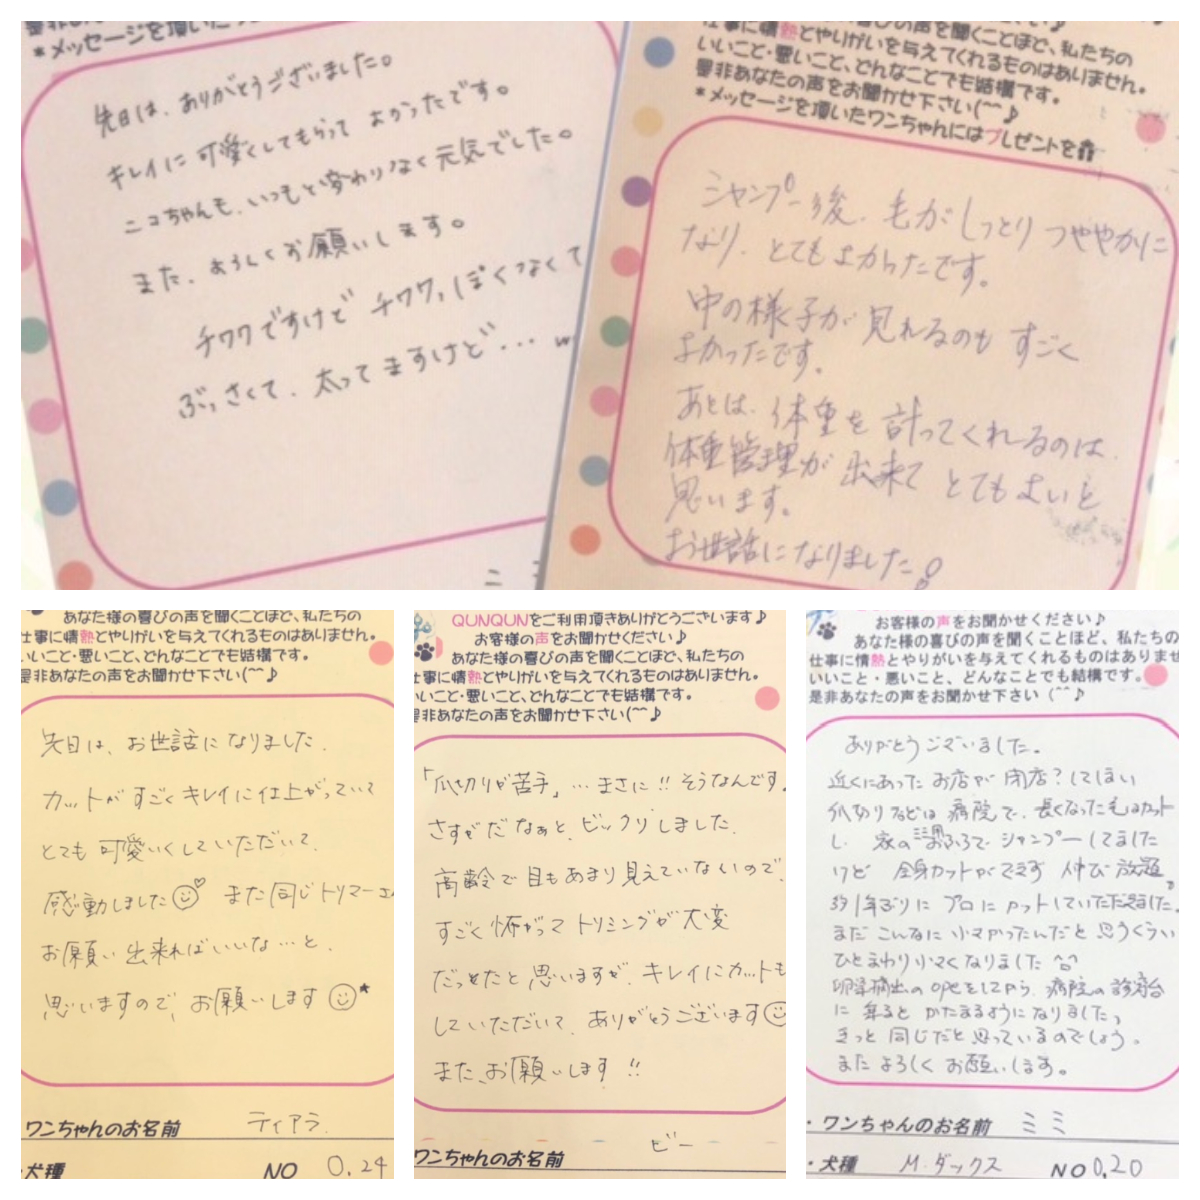 是非あなたの声をお聞かせ
*メッセージを頂いた
先日は、ありがとうございました。
キレイに可愛くしてもらって よかったです。
ニコちゃんも、いつもと変わりなく元気でした。
また、よろしくお願いします。
チワワですけど チワワっぽくなくて
ぶっさくて、太ってますけど・・・w
ニコ
あなた様の喜びの声を聞くことほど、私たちの
仕事に情熱とやりがいを与えてくれるものはありません。
いいこと・悪いこと、どんなことでも結構です。
是非あなたの声をお聞かせ下さい(^^♪
*メッセージを頂いたワンちゃんにはプレゼントを
シャンプー後、毛がしっとりつややかに
なり、とてもよかったです。
中の様子が見れるのもすごく
よかったです。
あとは、体重を計ってくれるのは、
体重管理が出来てとてもよいと
思います。
お世話になりました!
あなた様の喜びの声を聞くことほど、私たちの
仕事に情熱とやりがいを与えてくれるものはありません。
いいこと・悪いこと、どんなことでも結構です。
是非あなたの声をお聞かせ下さい(^^♪
先日は、お世話になりました。
カットがすごくキレイに仕上がっていて
とても可愛いくしていただいて、
感動しました また同じトリマーさん
お願い出来ればいいな…と、
思いますので、お願いします
ワンちゃんのお名前 ティアラ
・犬種 NO 0.24
QUNQUNをご利用頂きありがとうございます♪
お客様の声をお聞かせください♪
あなた様の喜びの声を聞くことほど、私たちの
仕事に情熱とやりがいを与えてくれるものはありません。
いいこと・悪いこと、どんなことでも結構です。
是非あなたの声をお聞かせ下さい(^^♪
「爪切りが苦手」…まさに!! そうなんです。
さすがだなぁと、ビックリしました。
高齢で目もあまり見えていないので、
すごく怖がってトリミングが大変
だったと思いますが、キレイにカットも
していただいて、ありがとうございます
また、お願いします!!
ワンちゃんのお名前 ビー
お客様の声をお聞かせください♪
あなた様の喜びの声を聞くことほど、私たちの
仕事に情熱とやりがいを与えてくれるものはありませ
いいこと・悪いこと、どんなことでも結構です。
是非あなたの声をお聞かせ下さい(^^♪
ありがとうございました。
近くにあったお店が閉店?してしまい
爪切りなどは病院で、長くなった毛はカット
し、家のお風呂でシャンプーしてました
けど 全身カットができず 伸び放題。
約1年ぶりにプロにカットしていただきました。
まだこんなに小さかったんだと思うくらい
ひとまわり小さくなりました ^^
卵巣摘出のopeをしてから、病院の診察台
に乗ると かたまるようになりました。
きっと同じだと思っているのでしょう。
またよろしくお願いします。
・ワンちゃんのお名前 ミミ
・犬種 M.ダックス NO 0.20